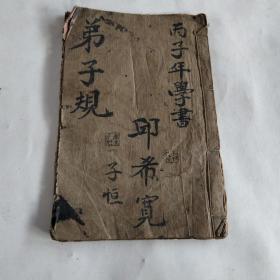 丙子年學書
邱希寬
子恒
弟子規